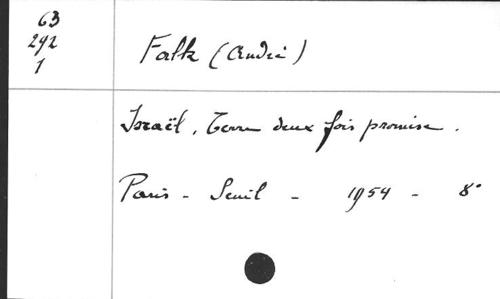 63
292
1
Falk (André)
Israël, Terre deux fois promise.
Paris - Seuil - 1954 - 8°